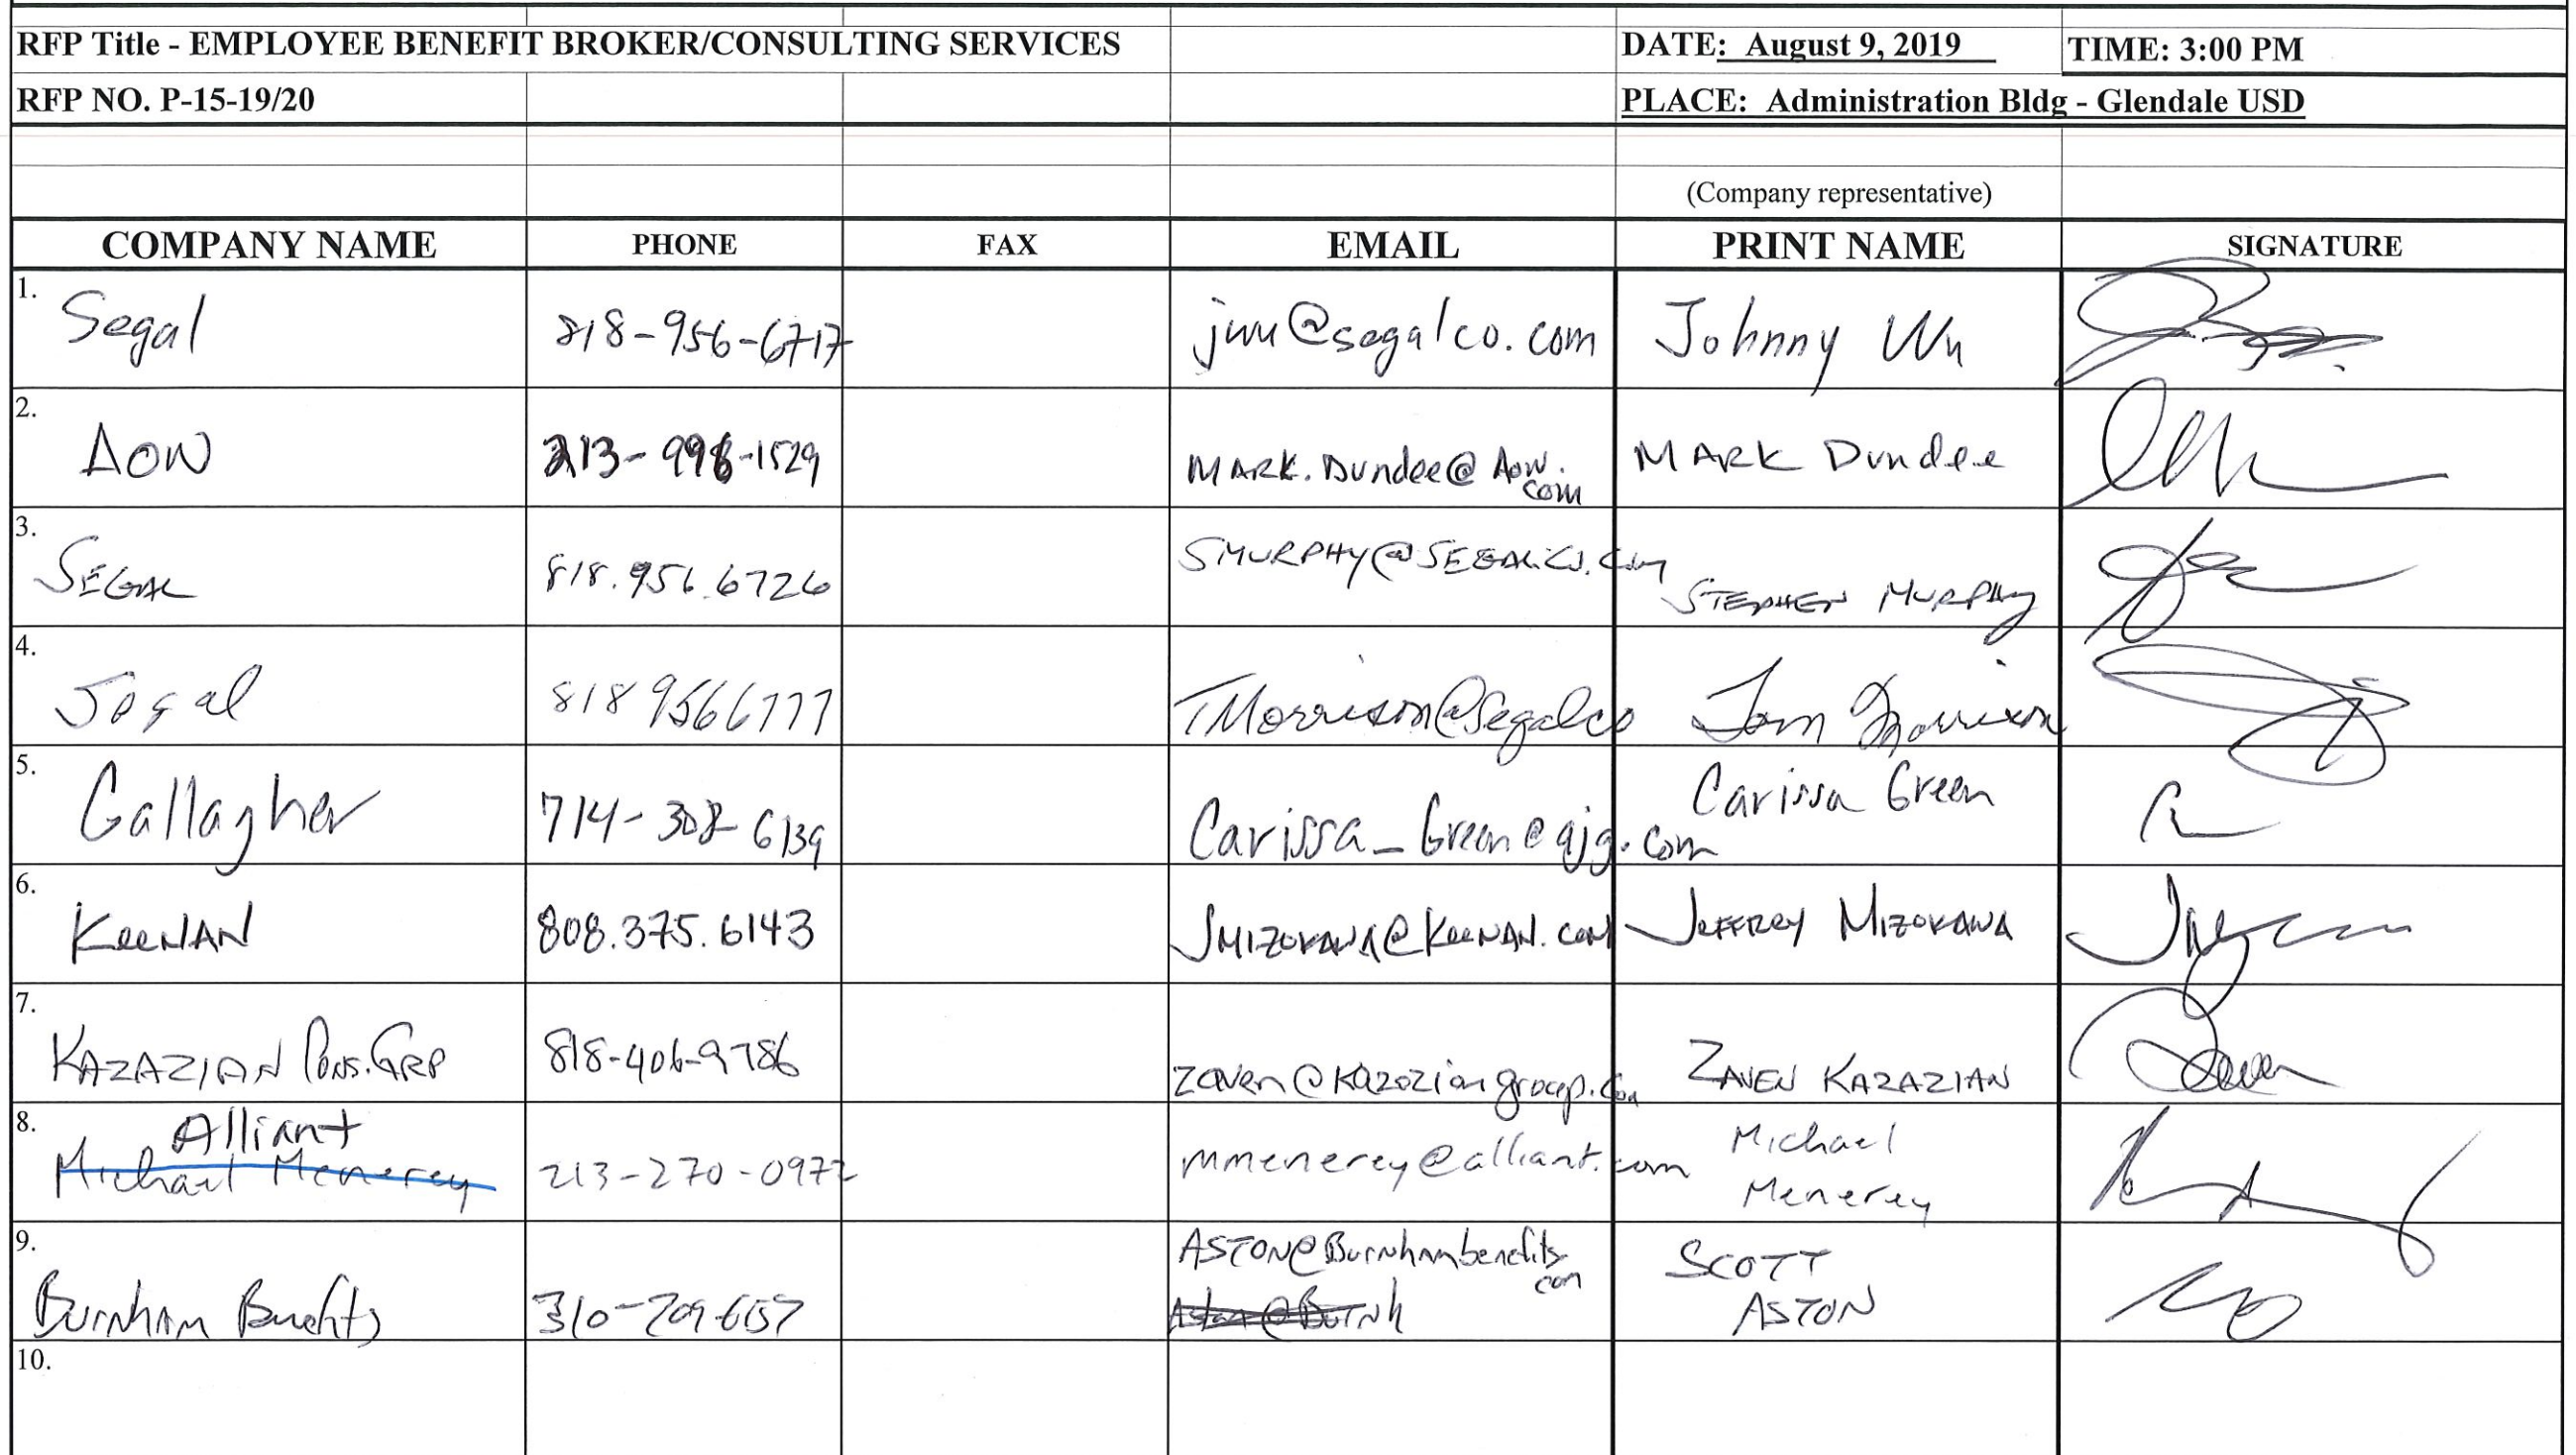 RFP Title - EMPLOYEE BENEFIT BROKER/CONSULTING SERVICES DATE: August 9, 2019 TIME: 3:00 PM
RFP NO. P-15-19/20 PLACE: Administration Bldg - Glendale USD
(Company representative)
COMPANY NAME PHONE FAX EMAIL PRINT NAME SIGNATURE
1. Segal 818-956-6717 jwu@segalco.com Johnny Wu
2. AON 213-996-1529 MARK.Dundee@Aon.com MARK Dundee
3. SEGAL 818.956.6726 SMURPHY@SEGALCO.COM STEPHEN MURPHY
4. Segal 818 9566777 TMorrison@Segalco Tom Morrison
5. Gallagher 714-308-6139 Carissa_Green@ajg.com Carissa Green
6. KeeNAN 808.375.6143 JMIZOKAWA@KeeNAN.com JeFFRey MIZOKAWA
7. KAZAZIAN Cons.GRP 818-406-9786 zaven@kazaziangroup.com ZAVEN KAZAZIAN
8. Alliant
Michael Menerey 213-270-0972 mmenerey@alliant.com Michael
Menerey
9. ASTON@Burnhambenefits.com SCOTT
Burnham Benefits Aston@Burnh ASTON
10.